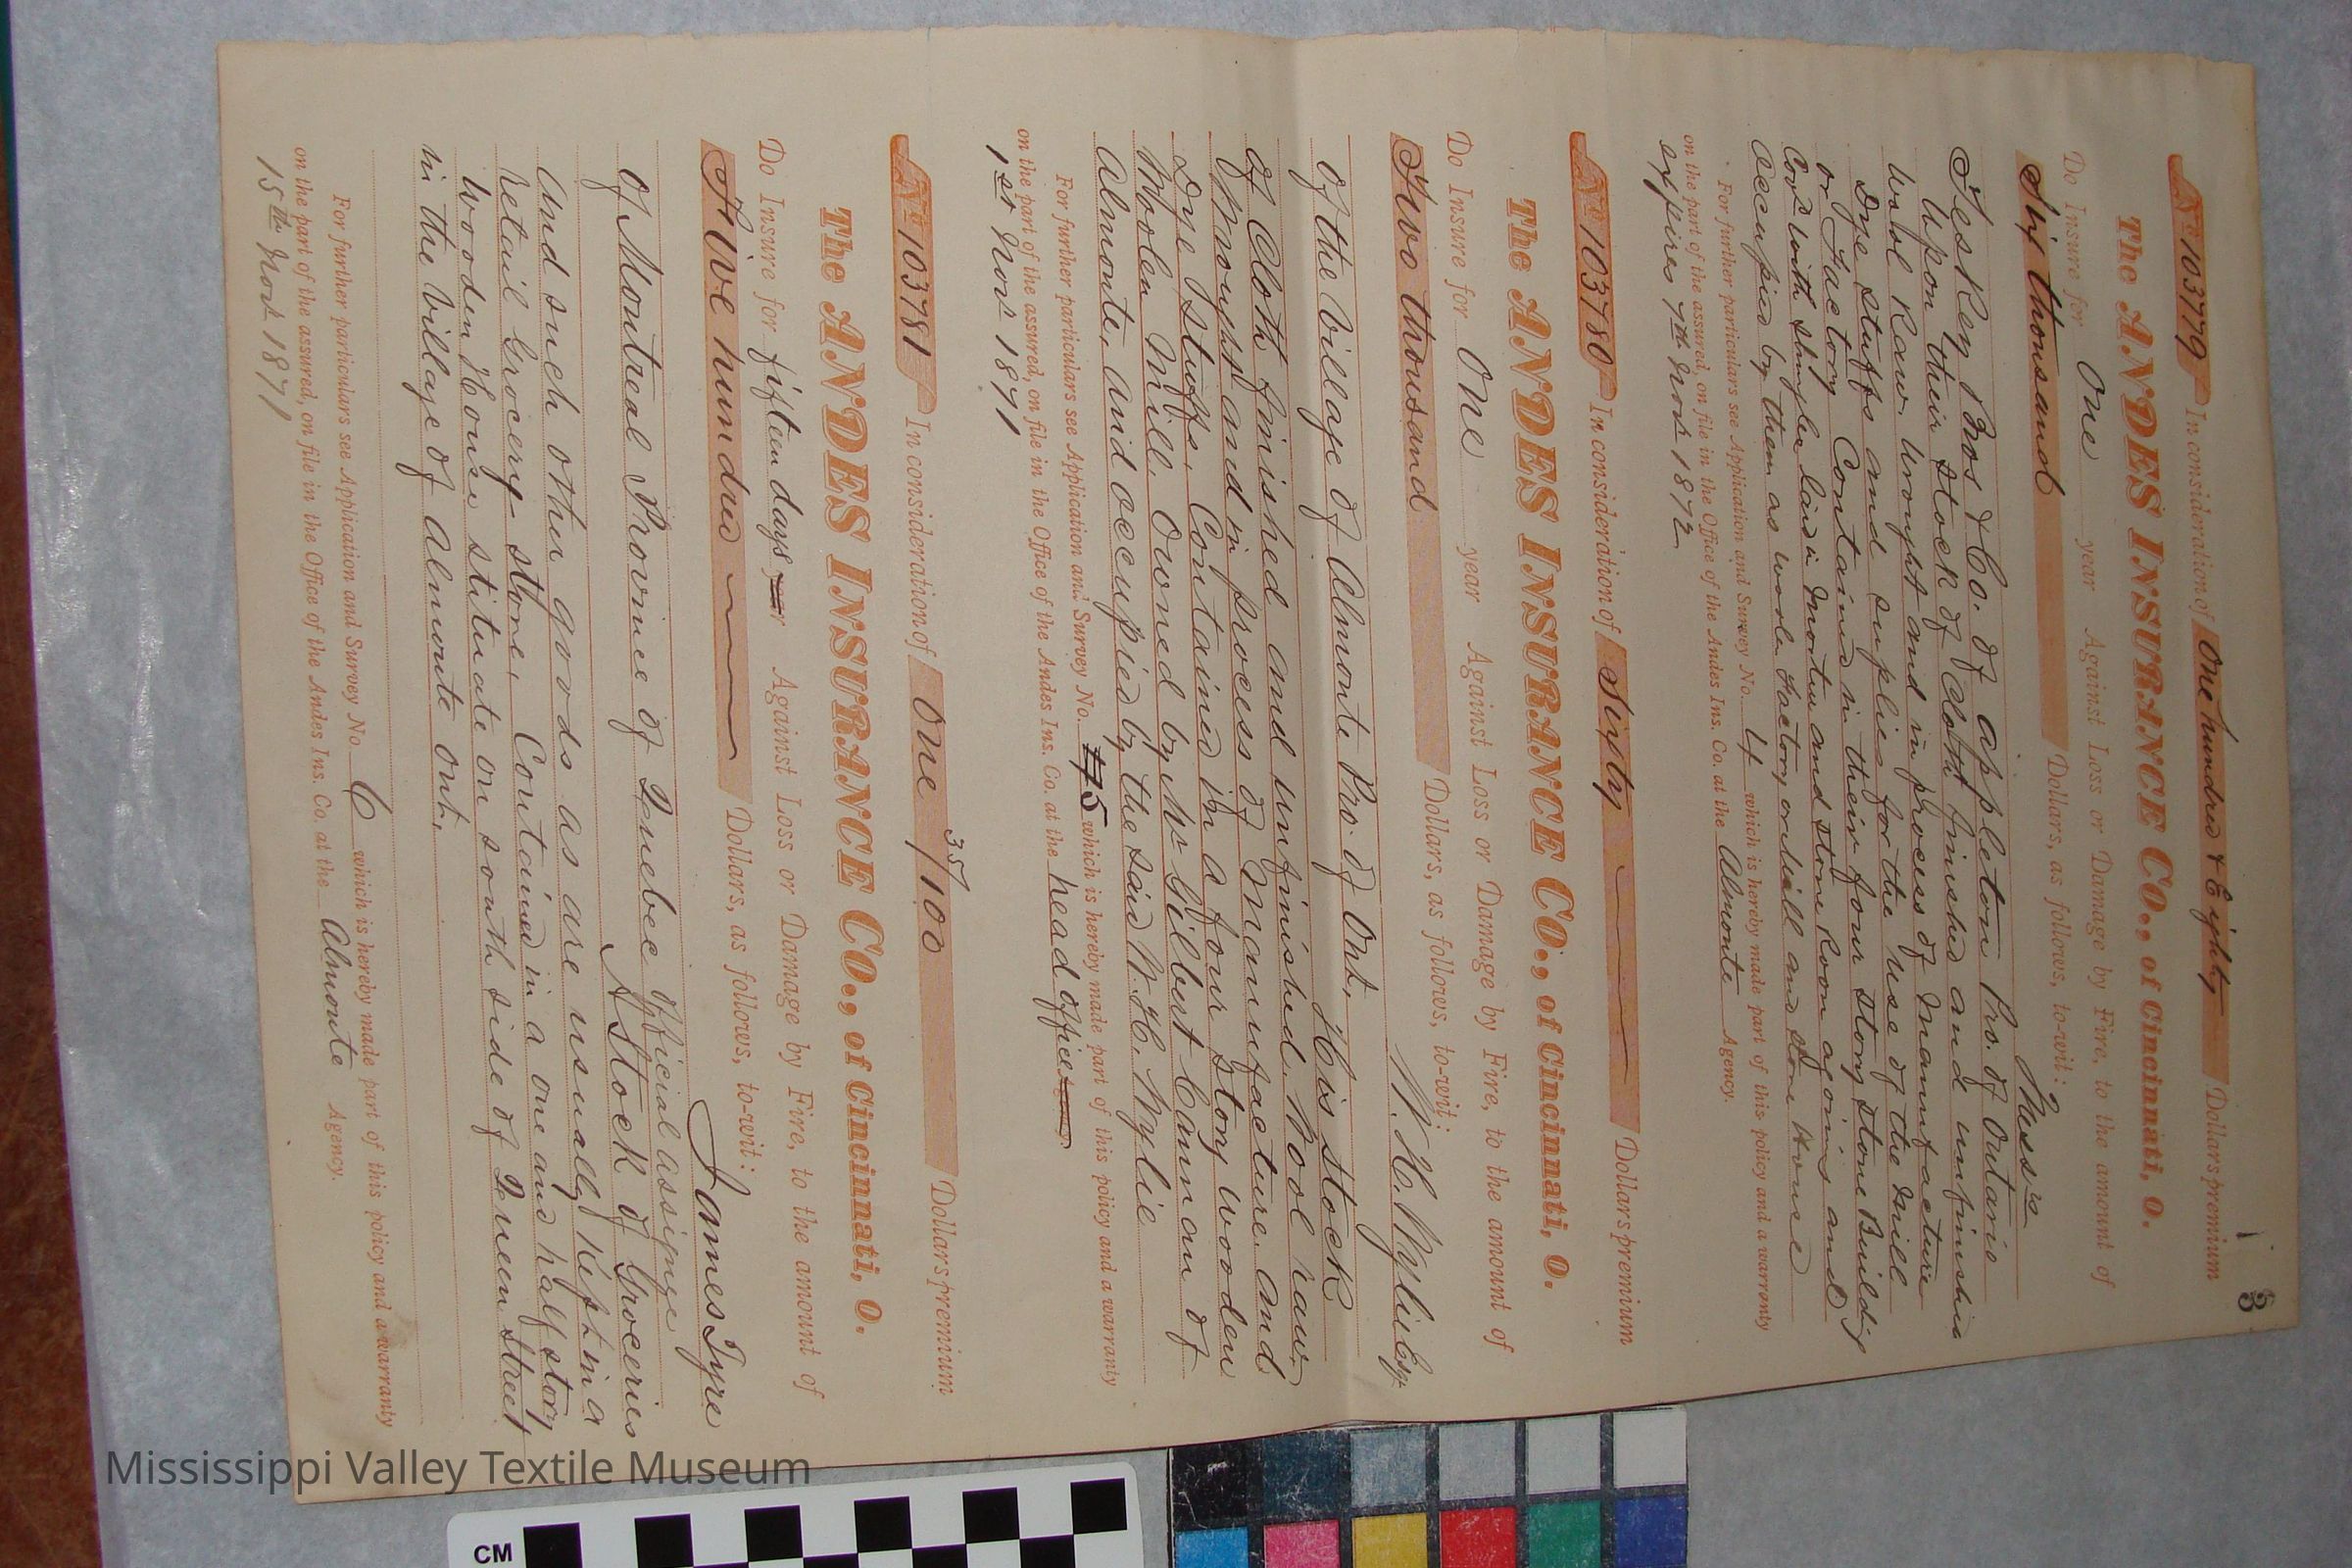 3
No 103779 In consideration of One hundred & Eighty Dollars premium
The ANDES INSURANCE CO., of Cincinnati, O.
Do Insure for One year Against Loss or Damage by Fire, to the amount of
Six thousand Dollars, as follows, to-wit:
Messrs
Teskey Bros & Co. of Appleton Pro. of Ontario
Upon their stock of Cloth finished and unfinished
Wool Raw wrought and in process of Manufacture
Dye stuffs and suplies for the use of the Mill
or Factory Contained in their four story stone Building
with shingles laid in Mortar and stone Room agoining and
Occupied by them as woolen Factory and stone House
For further particulars see Application and Survey No. 4 which is hereby made part of this policy and a warranty
on the part of the assured, on file in the Office of the Andes Ins. Co. at the Almonte Agency.
expires 7th Novr 1872
No 103780 In consideration of Sixty Dollars premium
The ANDES INSURANCE CO., of Cincinnati, O.
Do Insure for One year Against Loss or Damage by Fire, to the amount of
Two thousand Dollars, as follows, to-wit:
W. H. Wylie Esqr
of the Village of Almonte Pro. of Ont, His stock
of Cloth finished and unfinished. Wool raw
Wrought and in process of Manufacture. And
Dye Stuffs. Contained in a four Story wooden
Woolen Mill. Owned by Mr Gilbert Cannan of
Almonte, and occupied by the said W. H. Wylie
For further particulars see Application and Survey No. 5 which is hereby made part of this policy and a warranty
on the part of the assured, on file in the Office of the Andes Ins. Co. at the head office
1st Novr 1871
No 103781 In consideration of One 35/100 Dollars premium
The ANDES INSURANCE CO., of Cincinnati, O.
Do Insure for fifteen days year Against Loss or Damage by Fire, to the amount of
Five hundred Dollars, as follows, to-wit:
James Tyre
Of Montreal Province of Quebec Official assignee
A Stock of Groceries
And such other goods as are usually Kept in a
retail Grocery store, Contained in a one and half story
Wooden House situate on south side of Queen Street
in the Village of Almonte Ont.
For further particulars see Application and Survey No. 6 which is hereby made part of this policy and a warranty
on the part of the assured, on file in the Office of the Andes Ins. Co. at the Almonte Agency.
15th Novr 1871
Mississippi Valley Textile Museum
CM